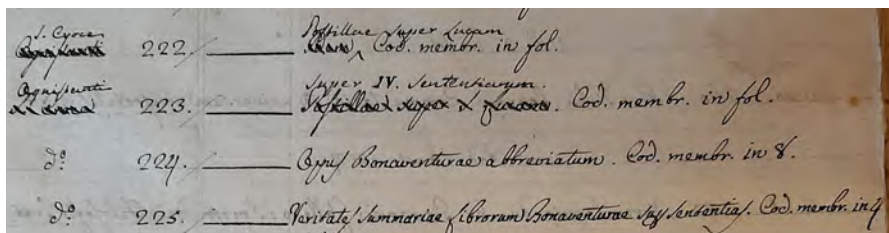 S. Cyoce Postillae super Lucam
222. Cod. membr. in fol.
super IV. Sententiarum.
223. Postillae super Cod. membr. in fol.
do. 224. Opus Bonaventurae abbreviatum. Cod. membr. in 8.
do. 225. Veritates summariae librorum Bonaventurae sup sententias. Cod. membr. in 4